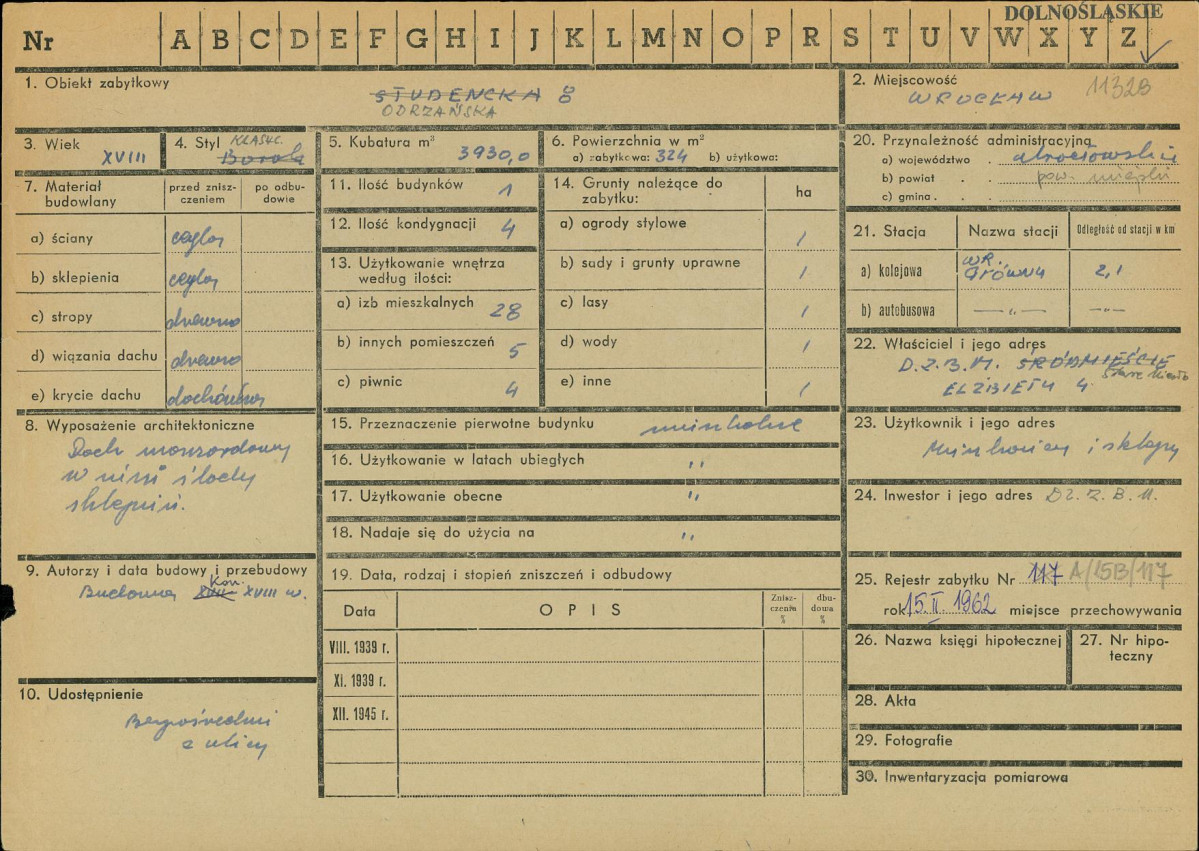 DOLNOŚLĄSKIE
Nr A B C D E F G H I J K L M N O P R S T U V W X Y Z
1. Obiekt zabytkowy
STUDENCKA 8
ODRZAŃSKA
2. Miejscowość 11328
WROCŁAW
3. Wiek
XVIII
4. Styl KLASYC.
Barok
5. Kubatura m³
3930,0
6. Powierzchnia w m²
a) zabytkowa: 324 b) użytkowa:
7. Materiał budowlany
przed zniszczeniem
po odbudowie
a) ściany cegła
b) sklepienia cegła
c) stropy drewno
d) wiązania dachu drewno
e) krycie dachu dachówka
8. Wyposażenie architektoniczne
Dach mansardowy
w nim ślady
sklepień.
9. Autorzy i data budowy i przebudowy
Budowa XVIII Kon. XVIII w.
10. Udostępnienie
Bezpośredni
z ulicy
11. Ilość budynków 1
12. Ilość kondygnacji 4
13. Użytkowanie wnętrza
według ilości:
a) izb mieszkalnych 28
b) innych pomieszczeń 5
c) piwnic 4
14. Grunty należące do
zabytku:
ha
a) ogrody stylowe /
b) sady i grunty uprawne /
c) lasy /
d) wody /
e) inne /
15. Przeznaczenie pierwotne budynku
16. Użytkowanie w latach ubiegłych "
17. Użytkowanie obecne "
18. Nadaje się do użycia na "
19. Data, rodzaj i stopień zniszczeń i odbudowy
Data
OPIS
Zniszczenia %
dbudowa %
VIII. 1939 r.
XI. 1939 r.
XII. 1945 r.
20. Przynależność administracyjną
a) województwo . wrocławskie
b) powiat . . pow. miejski
c) gmina . . .
21. Stacja
Nazwa stacji
Odległość od stacji w km
a) kolejowa WR. Główny 2,1
b) autobusowa —"— —"—
22. Właściciel i jego adres
D.Z.B.M. ŚRÓDMIEŚCIE
Stare Miasto
ELŻBIETY 4
23. Użytkownik i jego adres
i sklepy
24. Inwestor i jego adres DZ.Z.B.M.
25. Rejestr zabytku Nr 117 A/15B/117
rok 15.II.1962 miejsce przechowywania
26. Nazwa księgi hipotecznej
27. Nr hipoteczny
28. Akta
29. Fotografie
30. Inwentaryzacja pomiarowa